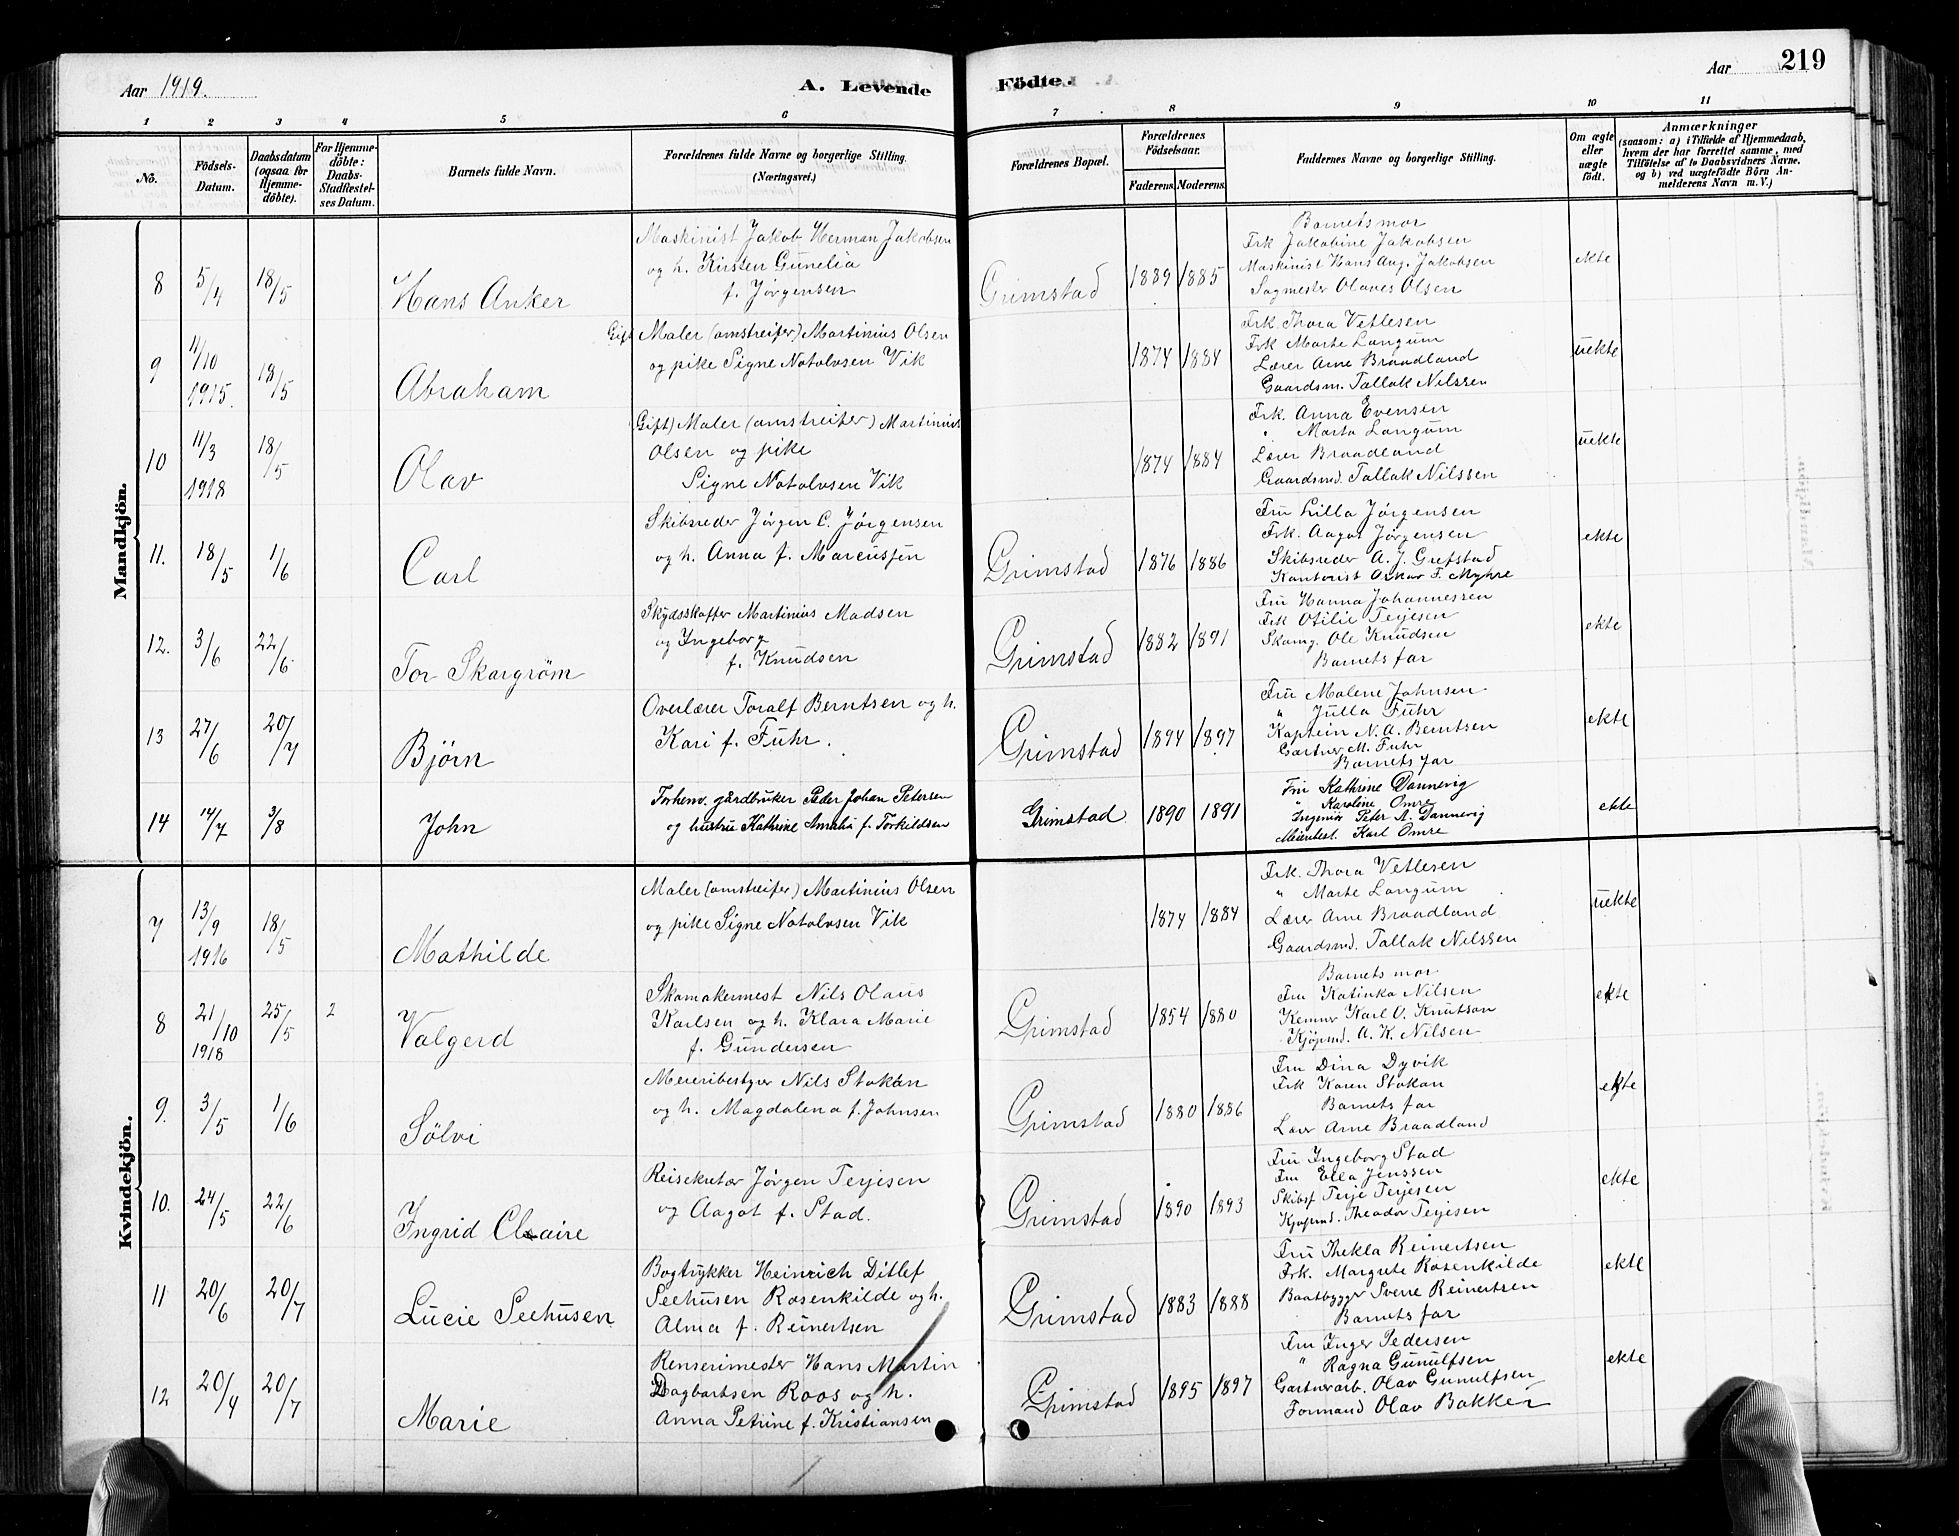 Aar 1919.
A. Levende
Födte.
Aar
219
1 2 3 4 5 6 7 8 9 10 11
No.
Födsels-Datum.
Daabsdatum (ogsaa for Hjemme-döbte).
For Hjemme-döbte: Daabs-Stadfæstel-ses Datum.
Barnets fulde Navn.
Forældrenes fulde Navne og borgerlige Stilling. (Næringsvei.)
Forældrenes Bopæl.
Forældrenes Födselsaar.
Faderens. Moderens.
Faddernes Navne og borgerlige Stilling.
Om ægte eller uægte födt.
Anmærkninger
(saasom: a) i Tilfælde af Hjemmedaab,
hvem der har forrettet samme, med
Tilföielse af to Daabsvidners Navne.
og b) ved uægtefödte Börn An-
melderens Navn m. V.)
Mandkjön.
8 5/4 18/5 Hans Anker
Maskinist Jakob Herman Jakobsen
og h. Kirsten Gunelia
f. Jørgensen
Grimstad 1889 1885
Barnets mor
Frk Jakobine Jakobsen
Maskinist Hans Aug. Jakobsen
Sagmester Olaves Olsen
ekte
9 11/10 1915. 18/5 Abraham
Gift Maler (omstreifer) Martinius Olsen
og pike Signe Notolvsen Vik
1874 1884
Frk. Thora Vetlesen
Frk Marte Langum
Lærer Arne Braadland
Gaardsm. Tallak Nilssen
uekte
10 11/3 1918 18/5 Olav
(Gift) Maler (omstreifer) Martinius
Olsen og pike
Signe Notolvsen Vik
1874 1884
Frk. Anna Evensen
" Marta Langum
Lærer Braadland
Gaardsmd. Tallak Nilssen
uekte
11. 18/5 1/6 Carl
Skibsreder Jørgen C. Jørgensen
og h. Anna f. Marcussen
Grimstad 1876 1886
Fru Lilla Jørgensen
Frk. Aagot Jørgensen
Skibsreder A. J. Grefstad
Kontorist Oskar F. Myhre
ekte
12. 3/6 22/6. Tor Skargrøm
Skydsskaffer Martinius Madsen
og Ingeborg
f. Knudsen
Grimstad 1882 1891
Fru Hanna Johannessen
Frk Otilie Terjesen
Skomg. Ole Knudsen
Barnets far
ekte
13 27/6 20/7 Bjørn
Overlærer Toralf Berntsen og h.
Kari f. Fuhr.
Grimstad 1894 1897
Fru Malene Johnsen
" Julla Fuhr
Kaptein N. A. Berntsen
Gartner M. Fuhr
Barnets far
ekte
14 14/7 3/8 John
Forhenv. gårdbruker Peder Johan Petersen
og hustru Kathrine Amalia f. Torkildsen
Grimstad 1890 1891
Fru Kathrine Dannevig
" Karoline Omre
Ingeniør Peter A. Dannevig
Karl Omre
ekte
Kvindekjön.
7 13/9 1916 18/5 Mathilde
Maler (omstreifer) Martinius Olsen
og pike Signe Notolvsen Vik
1874 1884
Frk. Thora Vetlesen
" Marte Langum
Lærer Arne Braadland
Gaardsmd. Tallak Nilssen
uekte
8 21/10 1918 25/5 2 Valgerd
Skomakermest Nils Olaus
Karlsen og h. Klara Marie
f. Gundersen
Grimstad 1854 1880
Barnets mor
Fru Katinka Nilsen
Kemner Karl O. Knutson
Kjøpmd. A. K. Nilsen
ekte
9. 3/5 1/6 Sölvi
Meieribestyrer Nils Stokan
og h. Magdalena f. Johnsen
Grimstad 1880 1886
Fru Dina Dyvik
Frk Karen Stokan
Barnets far
Lærer Arne Braadland
ekte
10. 24/5 22/6 Ingrid Claire
Reisekutør Jørgen Terjesen
og Aagot f. Stad.
Grimstad 1890 1893
Fru Ingeborg Stad
Fru Ella Jenssen
Skibsf Terje Terjesen
Kjøpmd. Theodor Terjesen
ekte
11 20/6 20/7 Lucie Seehusen
Bogtrykker Heinrich Ditlef
Seehusen Rosenkilde og h.
Alma f. Reinertsen
Grimstad 1883 1888
Fru Thekla Reinertsen
Frk. Margrete Rosenkilde
Baatbygger Svene Reinertsen
Barnets far
ekte
12 20/4 20/7 Marie
Renserimester Hans Martin
Dagbartsen Roos og h.
Anna Petrine f. Kristiansen
Grimstad 1895 1897
Fru Inger Pedersen
" Ragna Gunulfsen
Gartnerarb. Olav Gunulfsen
Formand Olav Bakken
ekte